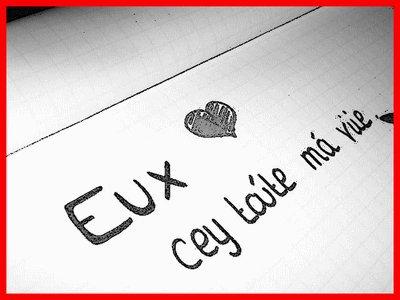 Eux
cey táùte má viie